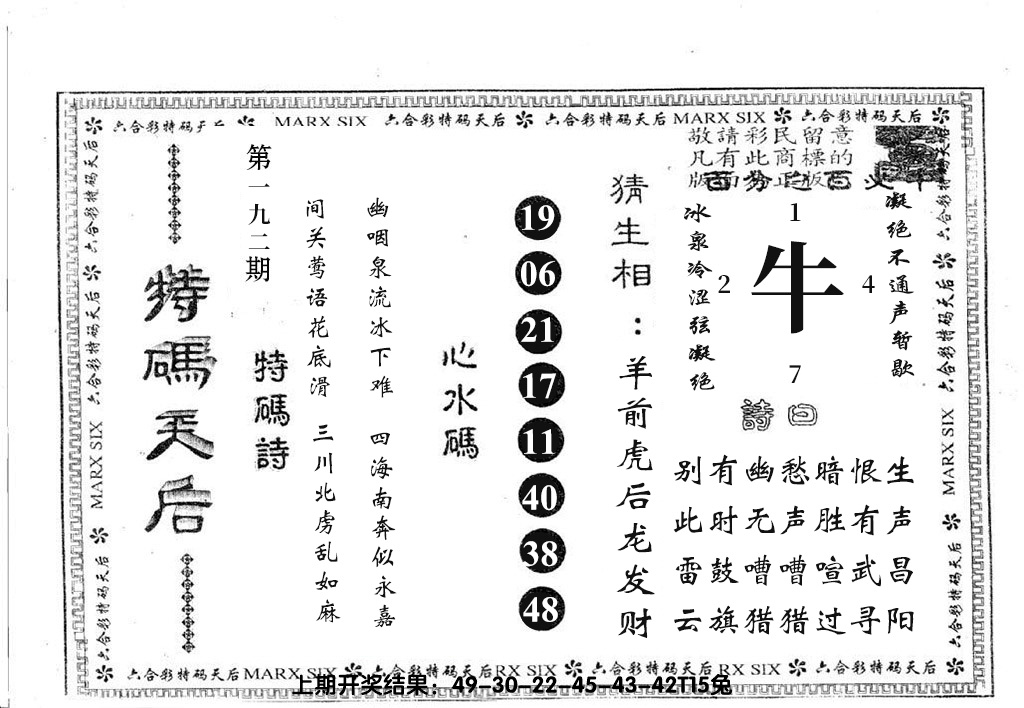 六合彩特码天后 MARX SIX 六合彩特码天后 六合彩特码天后 MARX SIX 六合彩特码天后
敬請彩民留意
凡有此商標的
第一九二期
特碼天后
特碼詩
间关莺语花底滑 三川北虏乱如麻
幽咽泉流冰下难 四海南奔似永嘉
心水碼
19
06
21
17
11
40
38
48
猜生相：羊前虎后龙发财
冰泉冷涩弦凝绝
1
2
牛
4
7
凝绝不通声暂歇
詩曰
别有幽愁暗恨生
此时无声胜有声
雷鼓嘈嘈喧武昌
云旗猎猎过寻阳
六合彩特码天后 MARX SIX 六合彩特码天后
六合彩特码天后 MARX SIX 六合彩特码天后
六合彩特码天后 MARX SIX 六合彩特码天后 RX SIX 六合彩特码天后 RX SIX 六合彩特码天后
上期开奖结果：49-30-22-45-43-42T15兔